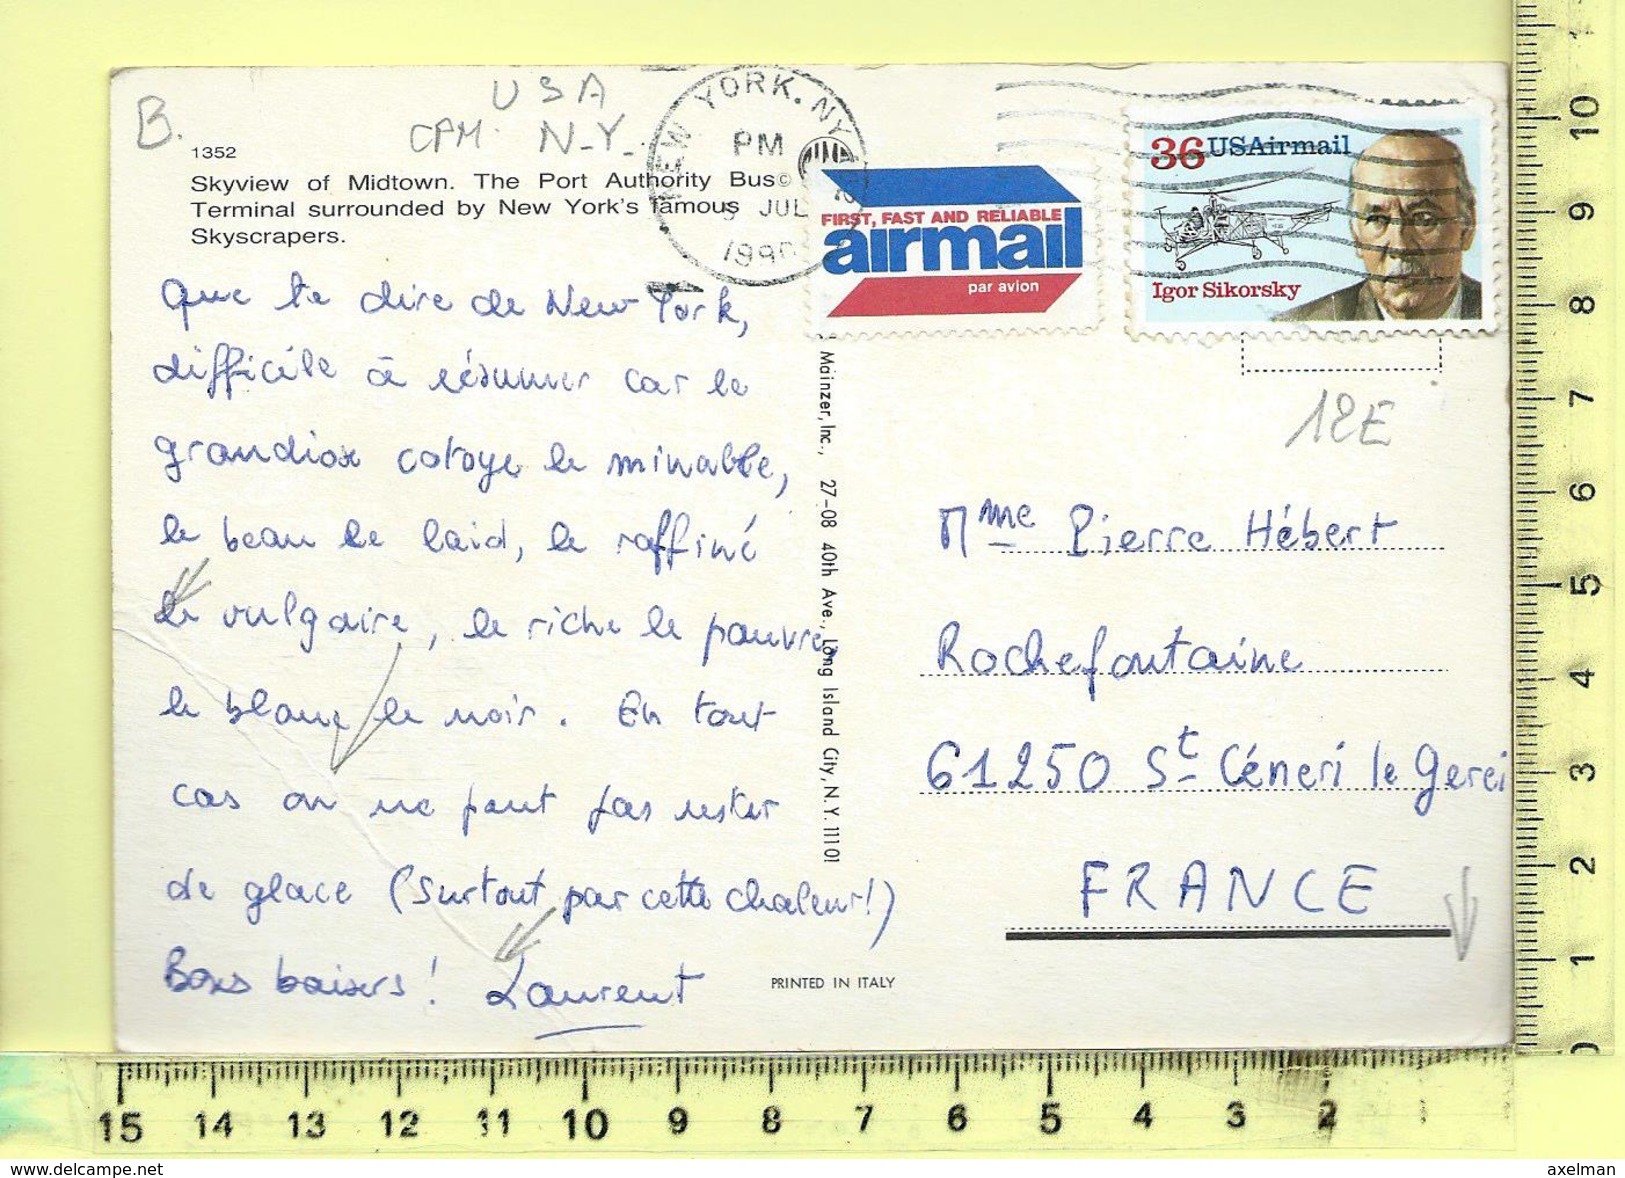 B.
USA
CPM. N-Y-
1352
Skyview of Midtown. The Port Authority Bus
Terminal surrounded by New York's famous
Skyscrapers.
NEW YORK, NY
PM
JUL
FIRST, FAST AND RELIABLE
airmail
par avion
36 USAirmail
Igor Sikorsky
Que te dire de New York,
difficile à résumer car le
grandiose cotoye le minable,
le beau le laid, le raffiné
le vulgaire, le riche le pauvre,
le blanc le noir. En tout
cas on ne peut pas rester
de glace (surtout par cette chaleur!)
Bons baisers! Laurent
Mainzer, Inc., 27-08 40th Ave., Long Island City, N.Y. 11101
PRINTED IN ITALY
12E
Mme Pierre Hébert
Rochefontaine
61250 St Céneri le Gerei
FRANCE
10
9
8
7
6
5
4
3
2
1
0
15 14 13 12 11 10 9 8 7 6 5 4 3 2
www.delcampe.net
axelman